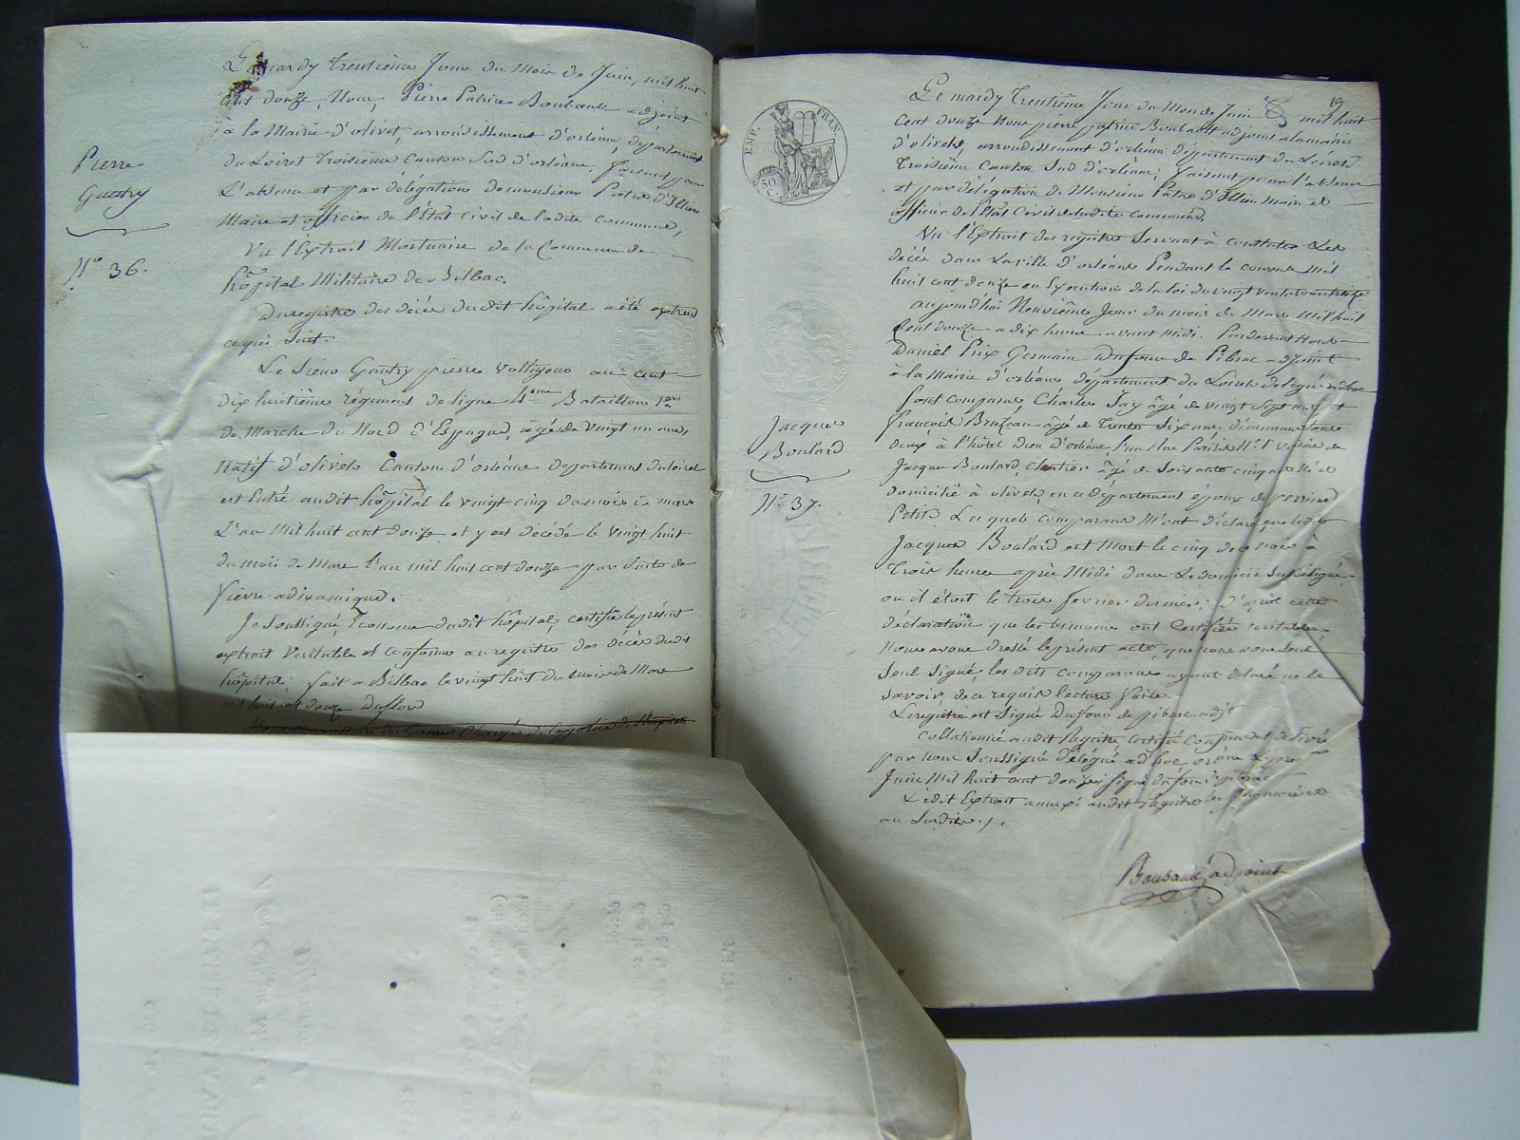 Pierre
Gautry
N.o 36.
Le mardy trentième Jour du Mois de Juin, mil huit
cent douze, Nous, Pierre Patrice Boubault adjoint
à la Mairie d'olivet, arrondissement d'orléans, département
du Loiret troisième Canton Sud d'orléans. faisant pour
L'absence et par délégation de monsieur Patas d'Illiers
Maire et officier de l'État Civil de ladite commune,
Vu l'Extrait Mortuaire de la Commune de
hôpital Militaire de Bilbao.
Du registre des décès dudit hôpital a été extrait
ce qui suit.
Le Sieur Gautry pierre voltigeur au cent
dix huitième régiment de ligne 4eme Bataillon
de Marche du Nord d'Espagne, agé de vingt un ans,
Natif d'olivet Canton d'orléans département du loiret
est Entré audit hôpital le vingt cinq du mois de mars
L'an Mil huit cent douze et y est décédé le vingt huit
du mois de Mars l'an mil huit cent douze par suite de
fièvre adinamique.
Je soussigné, Econome dudit hôpital, certifie le présent
extrait véritable et conforme au registre des décès dudit
hôpital, fait a Bilbao le vingt huit du mois de Mars
mil huit cent douze
EMP. FRAN
50
C.
19
Jacques
Boulard
N.o 37.
Le mardy trentième Jour du Mois de Juin mil huit
cent douze Nous pierre patrice Boubault adjoint a la mairie
d'olivet, arrondissement d'orléans département du Loiret
troisième Canton Sud d'orléans; faisant pour l'absence
et par délégation de Monsieur Patas d'Illiers Maire et
officier de l'État Civil de ladite commune,
Vu l'Extrait des registres servant à constater Les
décès dans La ville d'orléans Pendant le courant Mil
huit cent douze en Exécution de la loi du vingt
aujourd'hui Neuvième Jour du mois de Mars Mil huit
Cent douze a dix heures avant Midi. Pardevant Nous
Daniel Prix Germain Dufour de Pibrac adjoint
à la Mairie d'orléans, département du Loiret délégué
sont comparus Charles Jay âgé de vingt sept ans et
françois Bruzeau âgé de Trente Six ans, demeurant tous
deux à l'hôtel dieu d'orléans,
Jacques Boulard, âgé de soixante cinq ans Né et
domicilié à olivet, en ce département époux de
Petit Lesquels comparans M'ont déclaré que ledit
Jacques Boulard est Mort le cinq de ce mois à
trois heures après Midi dans Le domicile susdésigné
ou il étoit le trois février dernier; D'après cette
déclaration que les témoins ont Certifiée véritable
Nous avons dressé le présent acte, que nous avons seul
Seul Signé, les dits comparans ayant déclaré ne le
savoir, de ce requis lecture faite.
Le registre est Signé Dufour de pibrac adjt
Collationné audit Registre certifié conforme et délivré
par nous Soussigné délégué
Juin Mil huit cent douze, signé dufour de pibrac
Ledit Extrait annexé audit registre
au
Boubault adjoint